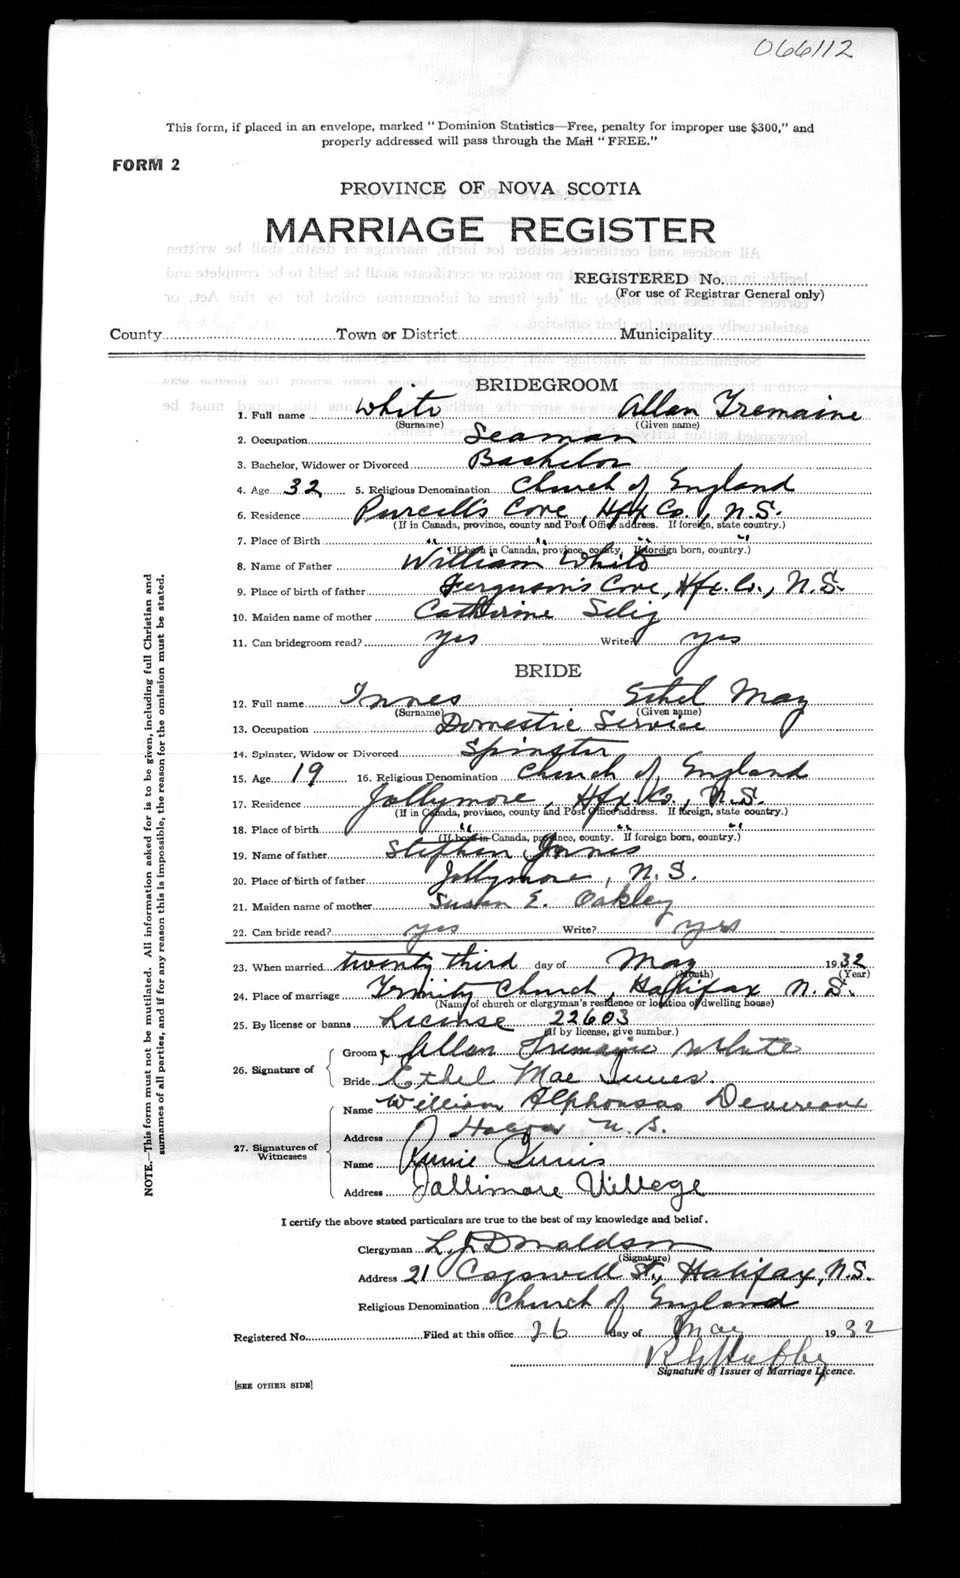 066112
This form, if placed in an envelope, marked "Dominion Statistics—Free, penalty for improper use $300," and
properly addressed will pass through the Mail "FREE."
FORM 2
PROVINCE OF NOVA SCOTIA
MARRIAGE REGISTER
REGISTERED No.
(For use of Registrar General only)
County Town or District Municipality
BRIDEGROOM
1. Full name White Allan Tremaine
(Surname) (Given name)
2. Occupation Seaman
3. Bachelor, Widower or Divorced Bachelor
4. Age 32 5. Religious Denomination Church of England
6. Residence Purcell's Cove, Hfx Co., N.S.
(If in Canada, province, county and Post Office address. If foreign, state country.)
7. Place of Birth " " " "
(If born in Canada, province, county. If foreign born, country.)
8. Name of Father William White
9. Place of birth of father Ferguson's Cove, Hfx. Co., N.S.
10. Maiden name of mother Catherine Selig
11. Can bridegroom read? yes Write? yes
BRIDE
12. Full name Innes Ethel May
(Surname) (Given name)
13. Occupation Domestic Service
14. Spinster, Widow or Divorced Spinster
15. Age 19 16. Religious Denomination Church of England
17. Residence Jollymore, Hfx Co., N.S.
(If in Canada, province, county and Post Office address. If foreign, state country.)
18. Place of birth " " "
(If born in Canada, province, county. If foreign born, country.)
19. Name of father Stephen Innes
20. Place of birth of father Jollymore, N.S.
21. Maiden name of mother Susan E. Oakley
22. Can bride read? yes Write? yes
23. When married twenty third day of May 1932
(Month) (Year)
24. Place of marriage Trinity Church, Halifax N.S.
(Name of church or clergyman's residence or location of dwelling house)
25. By license or banns License 22603
(If by license, give number.)
26. Signature of
Groom Allan Tremaine White
Bride Ethel Mae Innes.
27. Signatures of Witnesses
Name William Alphonsas Devereaux
Address N.S.
Name Innis
Address Jallimore Village
I certify the above stated particulars are true to the best of my knowledge and belief.
Clergyman L. J. Donaldson
(Signature)
Address 21 Cogswell St., Halifax, N.S.
Religious Denomination Church of England
Registered No. Filed at this office 26 day of May 1932
Signature of Issuer of Marriage Licence.
[SEE OTHER SIDE]
NOTE.—This form must not be mutilated. All information asked for is to be given, including full Christian and
surnames of all parties, and if for any reason this is impossible, the reason for the omission must be stated.